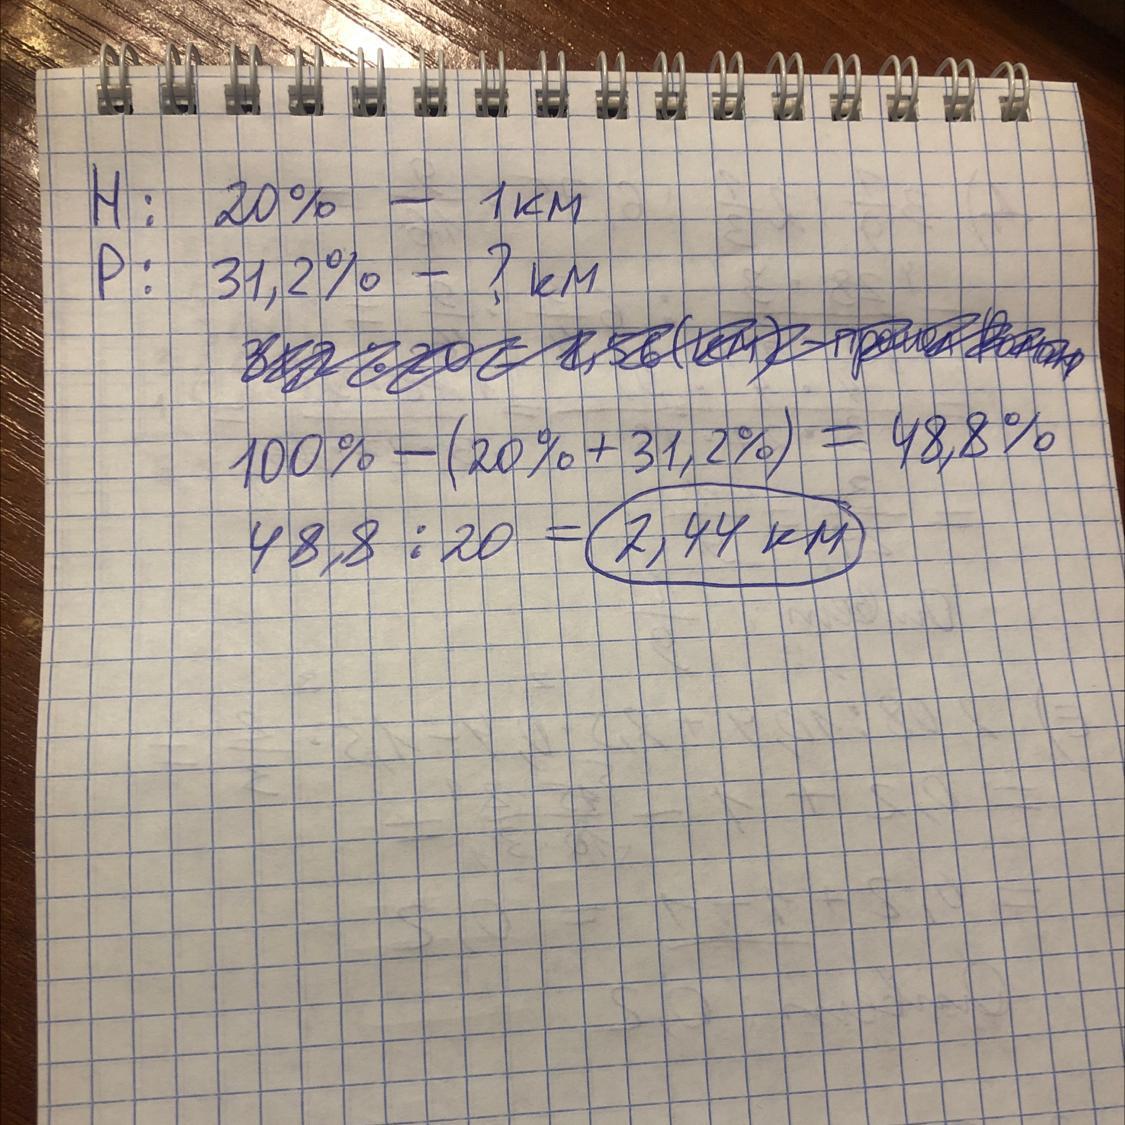 Н: 20% – 1 км
Р: 31,2% – ? км
100% – (20% + 31,2%) = 48,8%
48,8 : 20 = 2,44 км